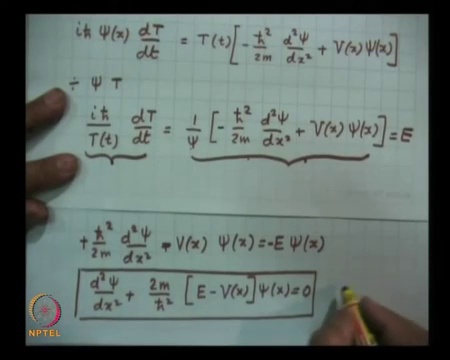 iħ Ψ(x) dT/dt = T(t) [ - ħ²/2m d²Ψ/dx² + V(x) Ψ(x) ]
÷ Ψ T
iħ/T(t) dT/dt = 1/Ψ [ - ħ²/2m d²Ψ/dx² + V(x) Ψ(x) ] = E
+ ħ²/2m d²Ψ/dx² - V(x) Ψ(x) = -E Ψ(x)
d²Ψ/dx² + 2m/ħ² [ E - V(x) ] Ψ(x) = 0
NPTEL